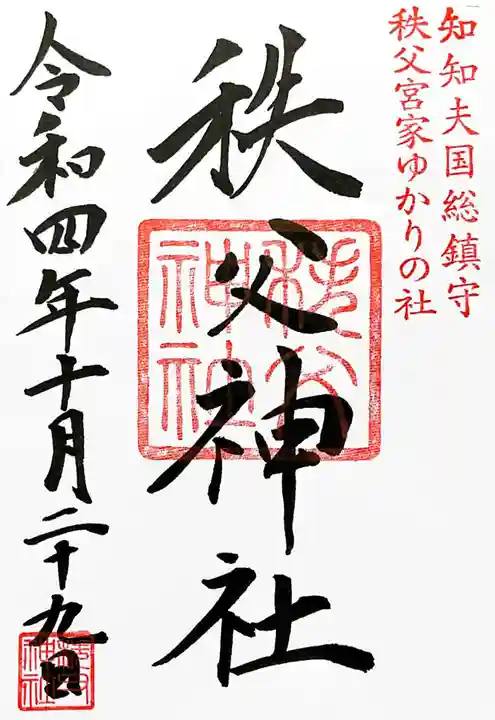 知知夫国総鎮守
秩父宮家ゆかりの社
秩父神社
秩父神社
令和四年十月二十九日
秩父神社